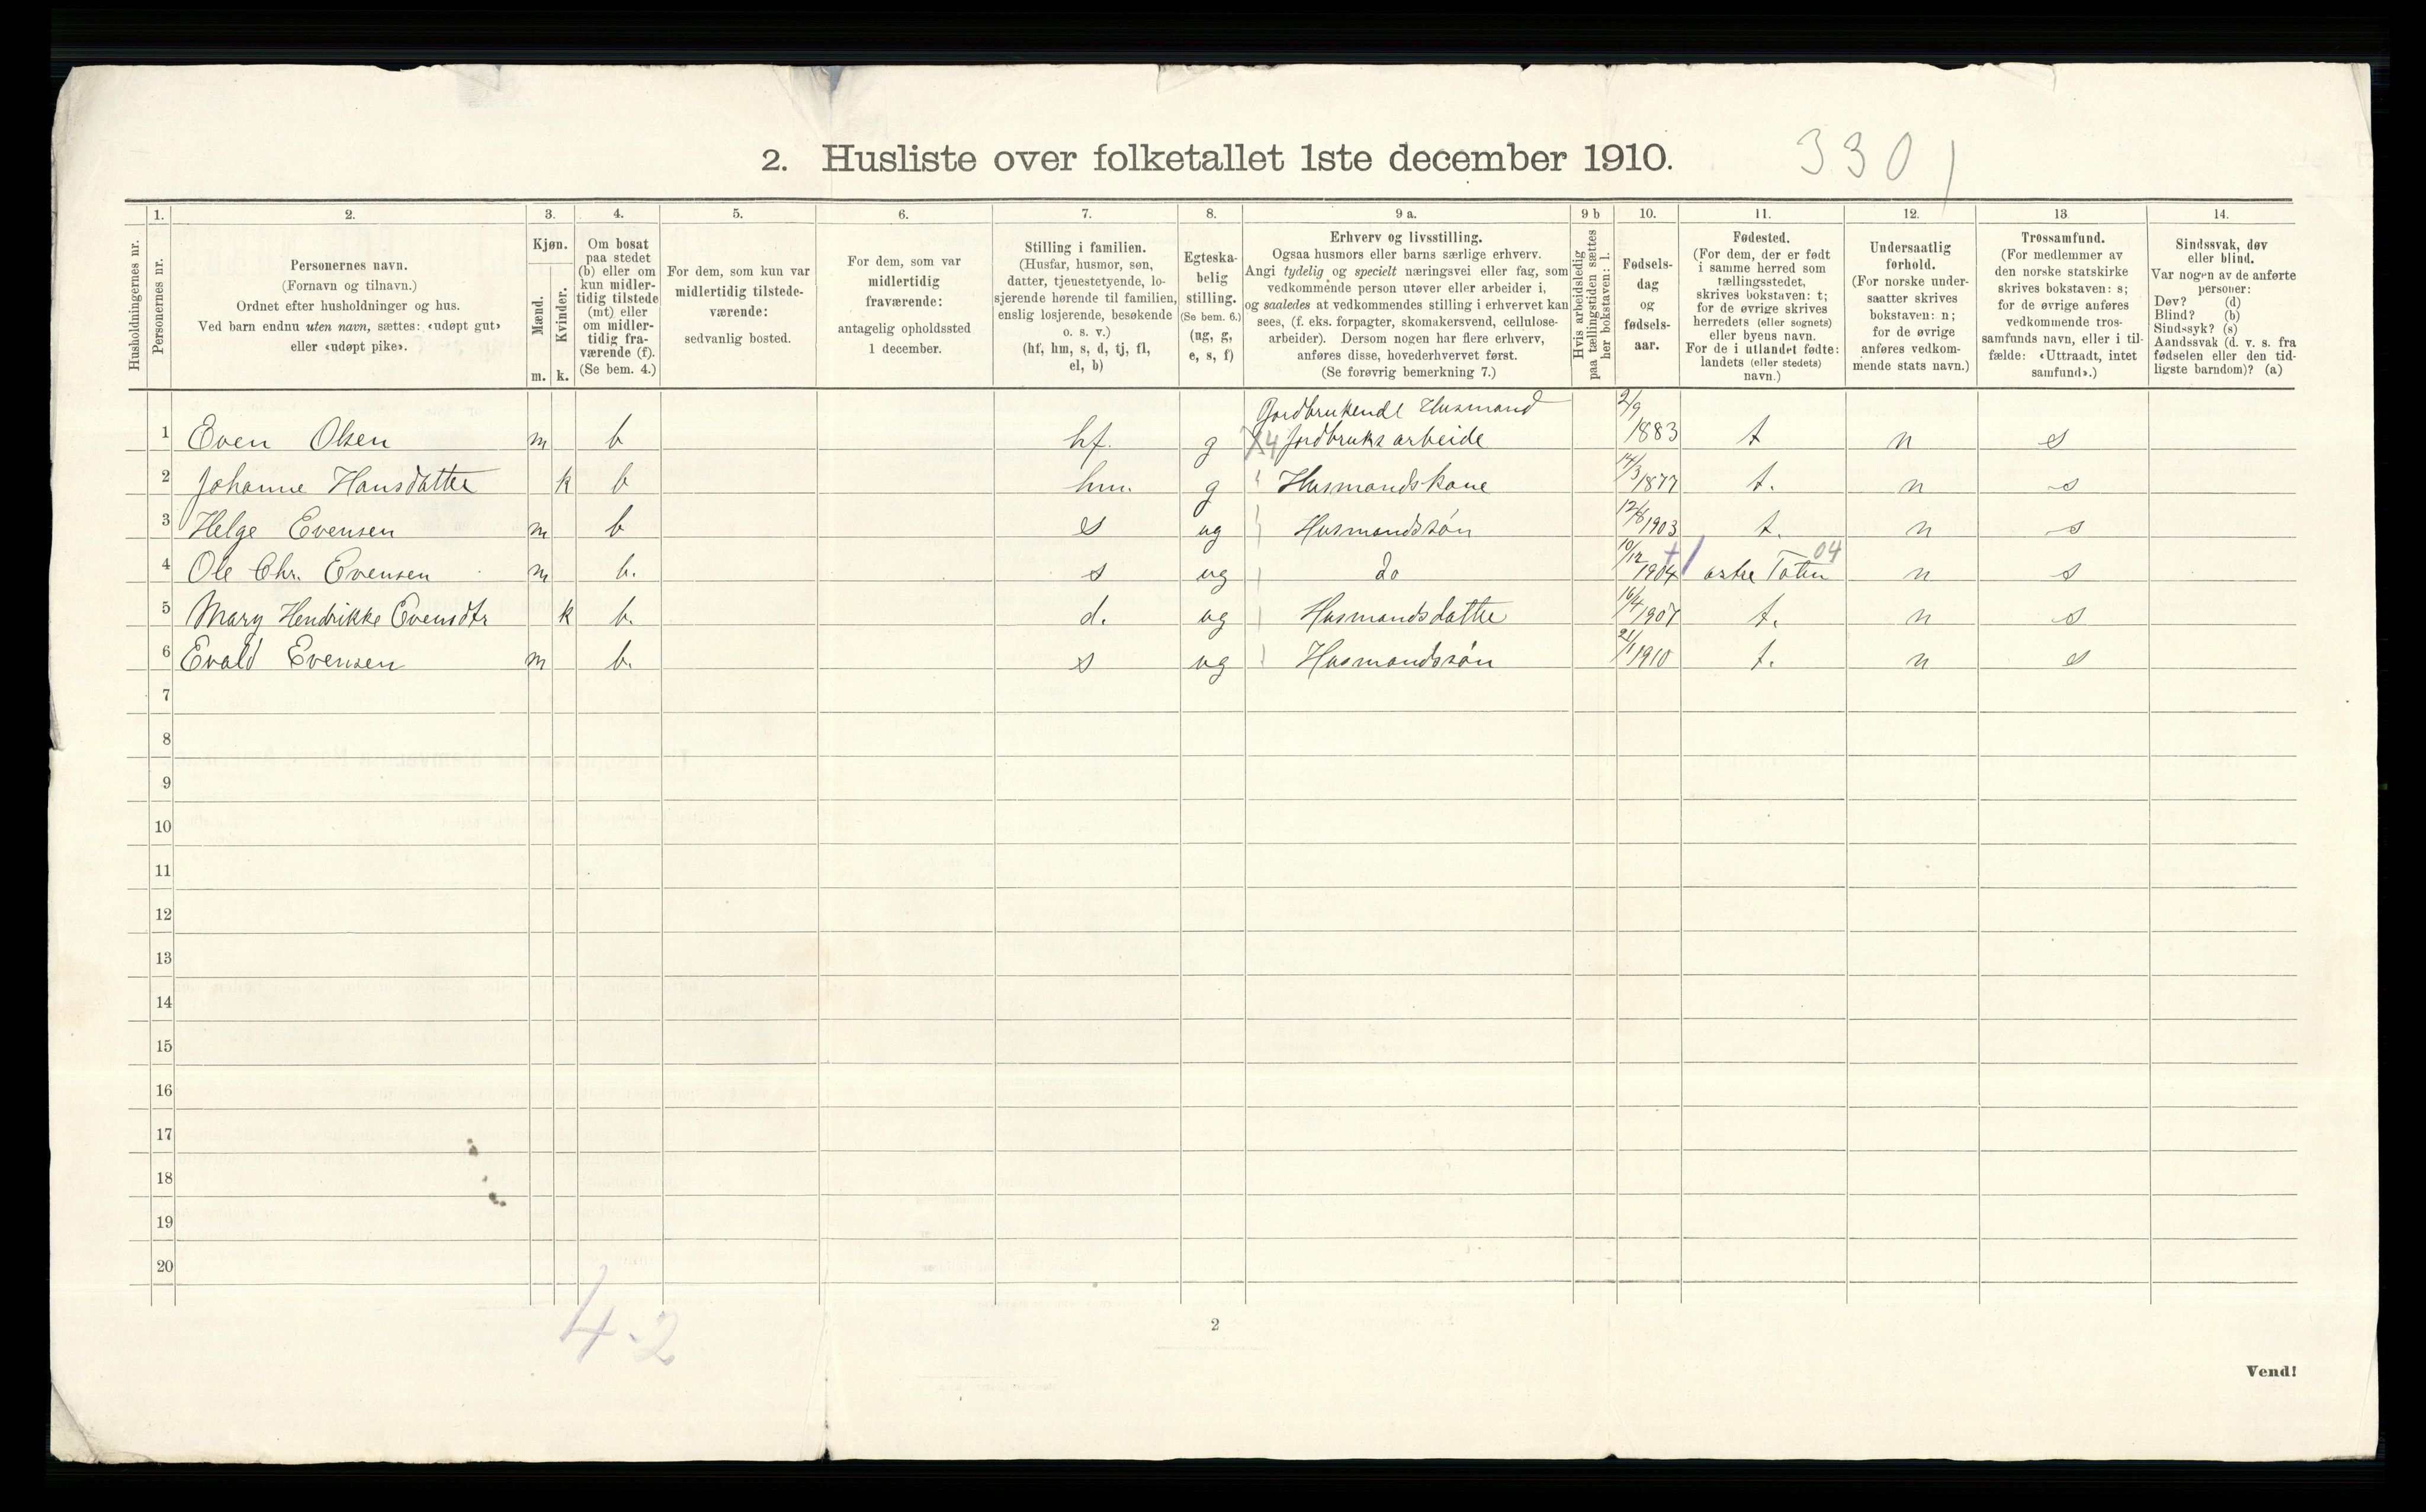 2. Husliste over folketallet 1ste december 1910.
3301
1. 2. 3. 4. 5. 6. 7. 8. 9 a. 9 b 10. 11. 12. 13 14.
Husholdningernes nr.
Personernes nr.
Personernes navn.
(Fornavn og tilnavn.)
Ordnet efter husholdninger og hus.
Ved barn endnu uten navn, sættes: «udøpt gut»
eller «udøpt pike».
Kjøn.
Mænd.
Kvinder.
m. k.
Om bosat
paa stedet
(b) eller om
kun midler-
tidig tilstede
(mt) eller
om midler-
tidig fra-
værende (f).
(Se bem. 4.)
For dem, som kun var
midlertidig tilstede-
værende:
sedvanlig bosted.
For dem, som var
midlertidig
fraværende:
antagelig opholdssted
1 december.
Stilling i familien.
(Husfar, husmor, søn,
datter, tjenestetyende, lo-
sjerende hørende til familien,
enslig losjerende, besøkende
o. s. v.)
(hf, hm, s, d, tj, fl,
el, b)
Egteska-
belig
stilling.
(Se bem. 6.)
(ug, g,
e, s, f)
Erhverv og livsstilling.
Ogsaa husmors eller barns særlige erhverv.
Angi tydelig og specielt næringsvei eller fag, som
vedkommende person utøver eller arbeider i,
og saaledes at vedkommendes stilling i erhvervet kan
sees, (f. eks. forpagter, skomakersvend, cellulose-
arbeider). Dersom nogen har flere erhverv,
anføres disse, hovederhvervet først.
(Se forøvrig bemerkning 7.)
Hvis arbeidsledig
paa tællingstiden sættes
her bokstaven: l.
Fødsels-
dag
og
fødsels-
aar.
Fødested.
(For dem, der er født
i samme herred som
tællingsstedet,
skrives bokstaven: t;
for de øvrige skrives
herredets (eller sognets)
eller byens navn.
For de i utlandet fødte:
landets (eller stedets)
navn.)
Undersaatlig
forhold.
(For norske under-
saatter skrives
bokstaven: n;
for de øvrige
anføres vedkom-
mende stats navn.)
Trossamfund.
(For medlemmer av
den norske statskirke
skrives bokstaven: s;
for de øvrige anføres
vedkommende tros-
samfunds navn, eller i til-
fælde: «Uttraadt, intet
samfund».)
Sindssvak, døv
eller blind.
Var nogen av de anførte
personer:
Døv? (d)
Blind? (b)
Sindssyk? (s)
Aandssvak (d. v. s. fra
fødselen eller den tid-
ligste barndom)? (a)
Jordbrukende Husmand 2/9
1 Even Olsen m b hf. g X4 Jordbruksarbeide 1883 t n s
2 Johanne Hansdatter k b hm. g Husmandskone 14/3 1877 t. n s
3 Helge Evensen m b s ug Husmandssøn 12/8 1903 t. n s
4 Ole Chr. Evensen m b. s ug do 10/12 1904 østre Toten 04 n s
5 Mary Hendrikke Evensdtr k b. d. ug Husmandsdatter 16/4 1907 t. n s
6 Evald Evensen m b. s ug Husmandssøn 21/1 1910 t. n s
7
8
9
10
11
12
13
14
15
16
17
18
19
20
4-2
2
Vend!